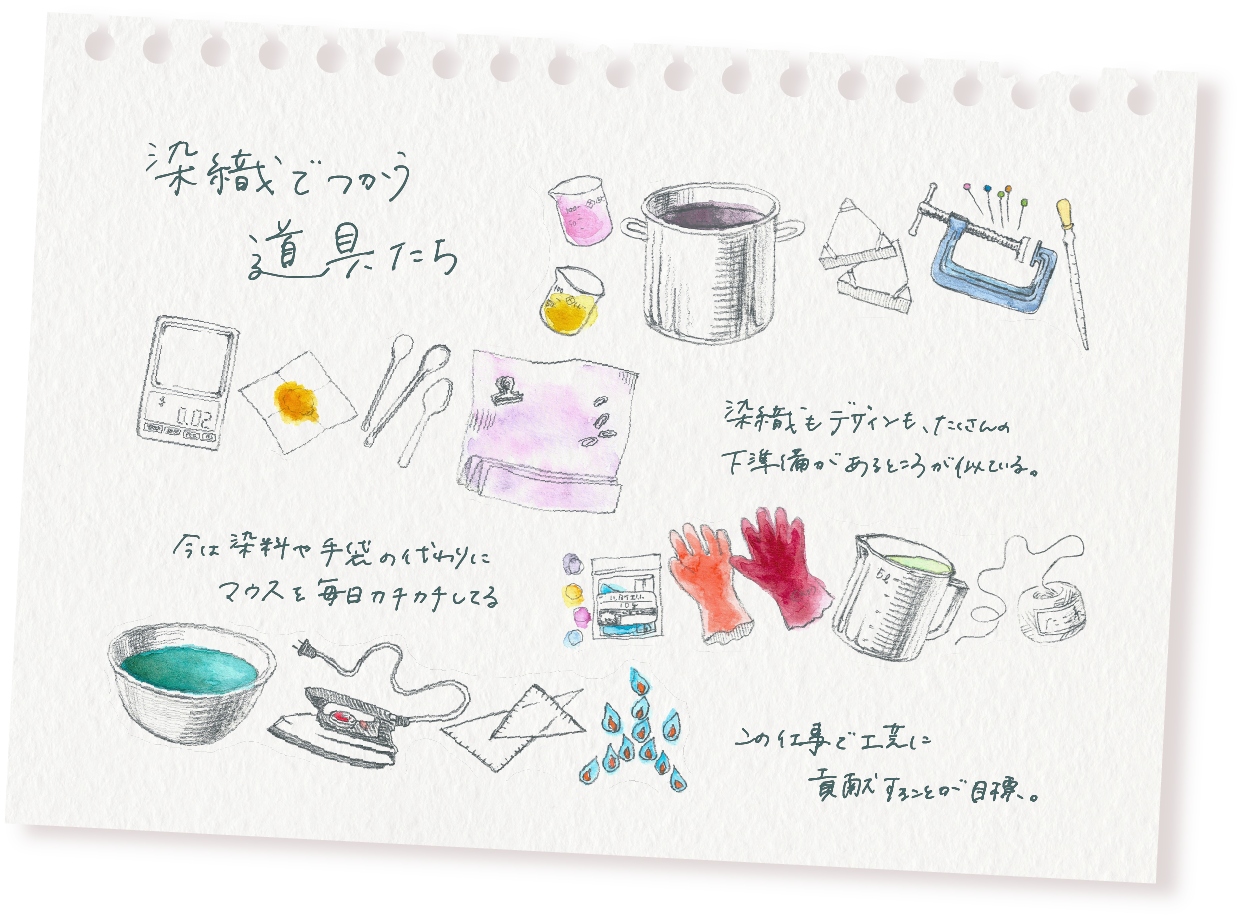 染織でつかう
道具たち
0.02
染織もデザインも、たくさんの
下準備があるところが似ている。
今は染料や手袋の代わりに
マウスを毎日カチカチしてる
10g
5ℓ
この仕事で工芸に
貢献することが目標、。